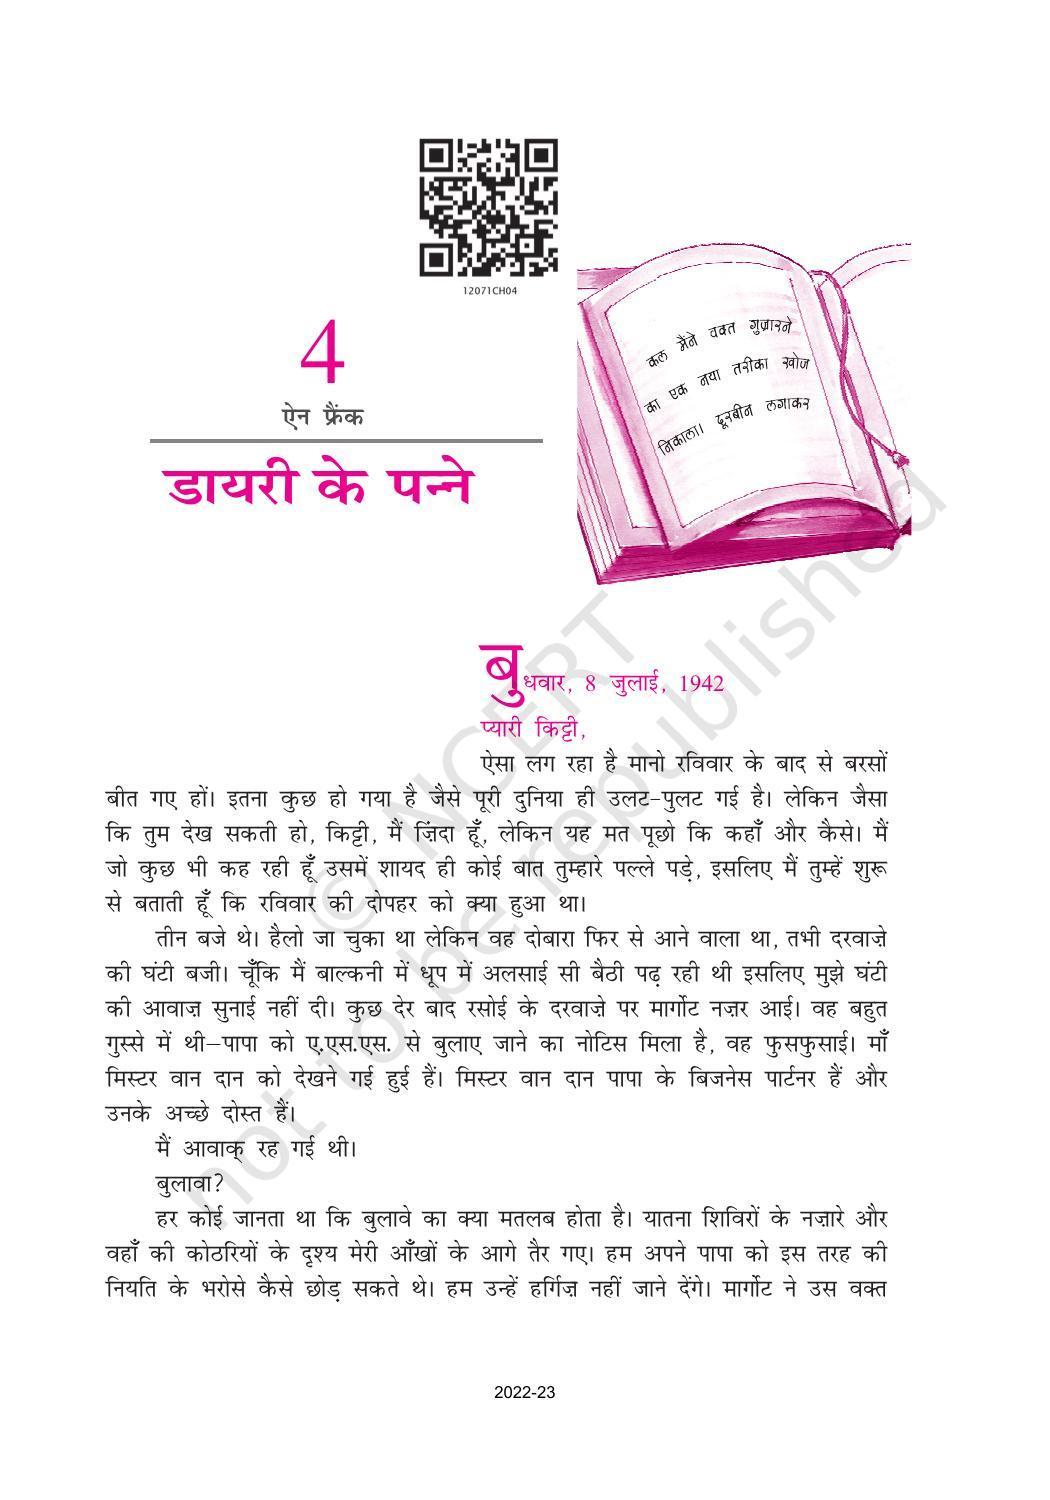 12071CH04
4
ऐन फ्रैंक
डायरी के पन्ने
कल मैंने वक्त गुज़ारने
का एक नया तरीका खोज
निकाला। दूरबीन लगाकर
बुधवार, 8 जुलाई, 1942
प्यारी किट्टी,
ऐसा लग रहा है मानो रविवार के बाद से बरसों
बीत गए हों। इतना कुछ हो गया है जैसे पूरी दुनिया ही उलट-पुलट गई है। लेकिन जैसा
कि तुम देख सकती हो, किट्टी, मैं ज़िंदा हूँ, लेकिन यह मत पूछो कि कहाँ और कैसे। मैं
जो कुछ भी कह रही हूँ उसमें शायद ही कोई बात तुम्हारे पल्ले पड़े, इसलिए मैं तुम्हें शुरू
से बताती हूँ कि रविवार की दोपहर को क्या हुआ था।
तीन बजे थे। हैलो जा चुका था लेकिन वह दोबारा फिर से आने वाला था, तभी दरवाज़े
की घंटी बजी। चूँकि मैं बाल्कनी में धूप में अलसाई सी बैठी पढ़ रही थी इसलिए मुझे घंटी
की आवाज़ सुनाई नहीं दी। कुछ देर बाद रसोई के दरवाज़े पर मार्गोट नज़र आई। वह बहुत
गुस्से में थी–पापा को ए.एस.एस. से बुलाए जाने का नोटिस मिला है, वह फुसफुसाई। माँ
मिस्टर वान दान को देखने गई हुई हैं। मिस्टर वान दान पापा के बिजनेस पार्टनर हैं और
उनके अच्छे दोस्त हैं।
मैं आवाक् रह गई थी।
बुलावा?
हर कोई जानता था कि बुलावे का क्या मतलब होता है। यातना शिविरों के नज़ारे और
वहाँ की कोठरियों के दृश्य मेरी आँखों के आगे तैर गए। हम अपने पापा को इस तरह की
नियति के भरोसे कैसे छोड़ सकते थे। हम उन्हें हर्गिज़ नहीं जाने देंगे। मार्गोट ने उस वक्त
© NCERT
not to be republished
2022-23